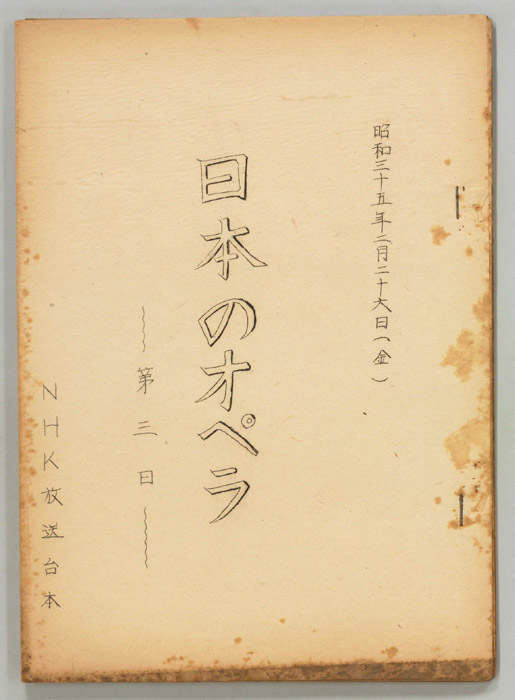 昭和三十五年二月二十六日(金)
日本のオペラ
第三日
NHK放送台本